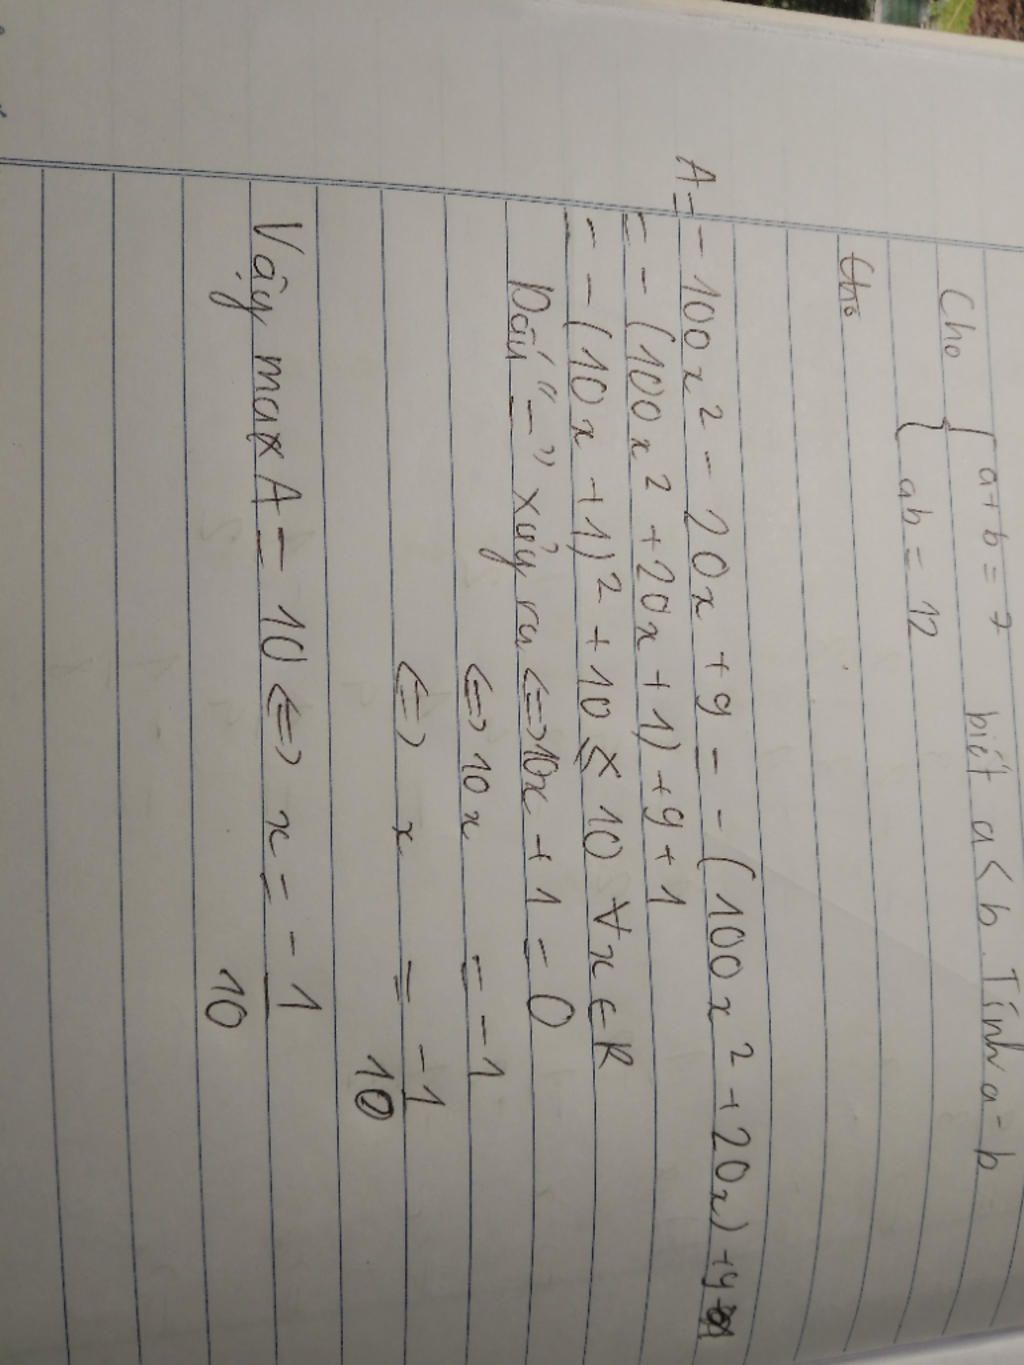 Cho { a + b = 7 biết a < b. Tính a - b
{ ab = 12
Cho
A = - 100x² - 20x + 9 = - (100x² + 20x) + 9
= - (100x² + 20x + 1) + 9 + 1
= - (10x + 1)² + 10 ≤ 10 ∀x ∈ R
Dấu "=" xảy ra <=> 10x + 1 = 0
<=> 10x = -1
<=> x = -1/10
Vậy max A = 10 <=> x = -1/10